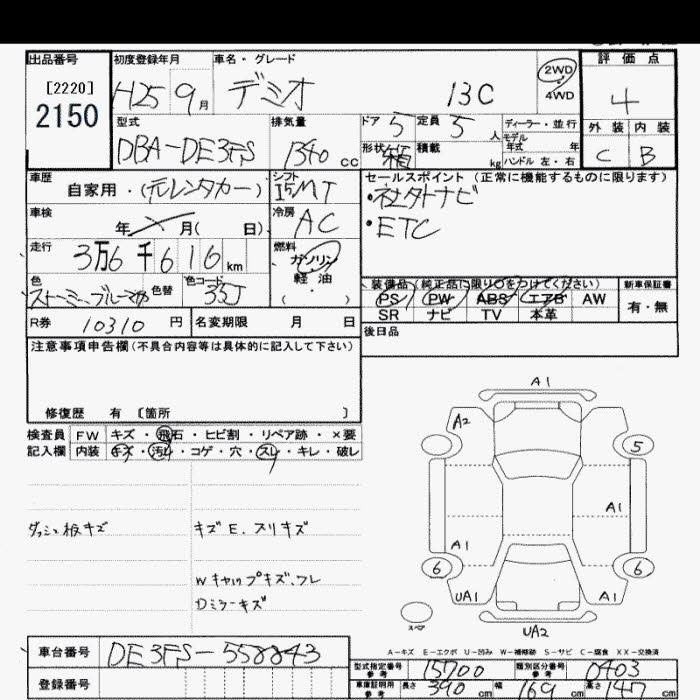 出品番号 初度登録年月 車名・グレード 評価点
[2220]
2150
H25 9月 デミオ 13C 2WD 4WD 4
型式 排気量 ドア 5 定員 5人 ディーラー・並行 外装 内装
モデル年式 年
DBA-DE3FS 1340cc 形状 箱 積載 kg ハンドル 左・右 C B
車歴 シフト セールスポイント(正常に機能するものに限ります)
自家用・(元レンタカー) I5MT ・社外ナビ
車検 冷房 ・ETC
年 月( 日) AC
走行 燃料
3万6千616km ガソリン
軽油
色 色替 色コード 装備品(純正品に限り○をつけてください) 新車保証書
35J ( ・ ) PS PW ABS エアB AW 有・無
SR ナビ TV 本革
R券 10310円 名変期限 月 日 後日品
注意事項申告欄(不具合内容等は具体的に記入して下さい)
修復歴 有 [箇所 ]
検査員 FW キズ・飛石・ヒビ割・リペア跡・×要
記入欄 内装 キズ・汚れ・コゲ・穴・スレ・キレ・破レ
A1
A2
5
A1
A1
6 6
UA1 A1
スペア
UA2
ダッシュ板キズ キズE.スリキズ
Wキャップキズ、ワレ
Dミラーキズ
A-キズ E-エクボ U-凹み W-補修跡 S-サビ C-腐食 XX-交換済
車台番号 DE3FS-558843
登録番号
型式指定番号 参考 15700 類別区分番号 参考 0403
車庫証明用 参考 長さ 390cm 幅 169cm 高さ 147cm